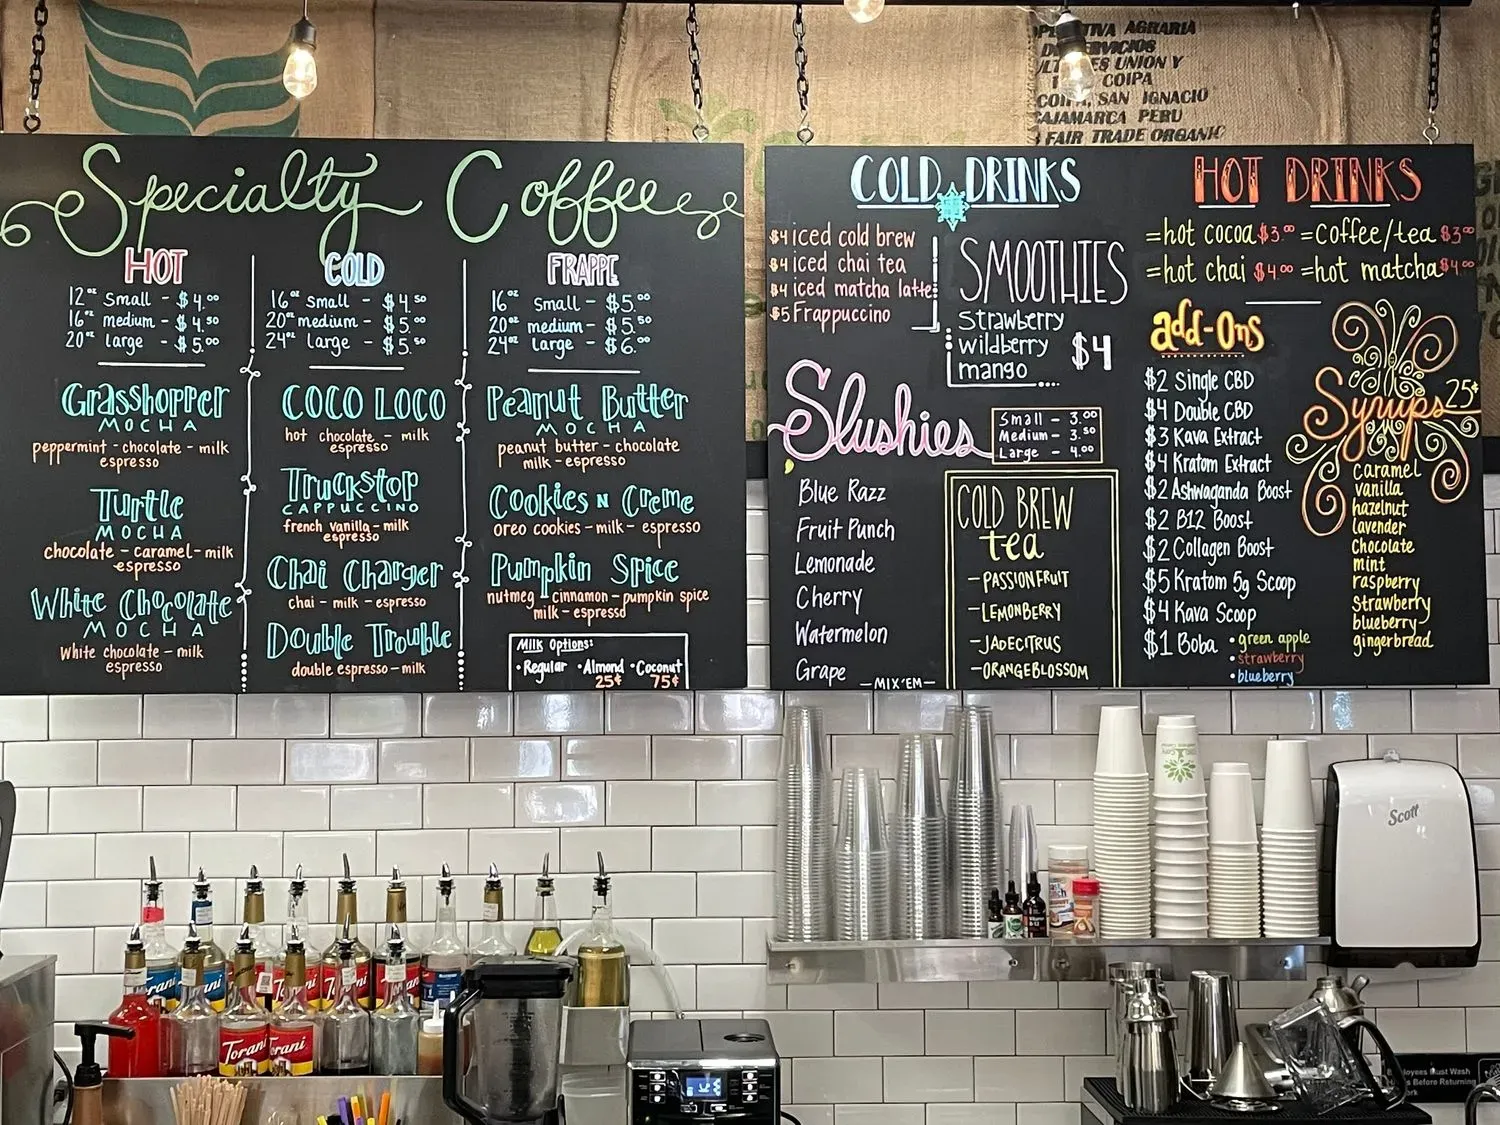 TIVA AGRARIA
SERVICIOS
ES UNION Y
COIPA
SAN IGNACIO
CAJAMARCA PERU
FAIR TRADE ORGANIC
Specialty Coffee
HOT
12oz small - $4.00
16oz medium - $4.50
20oz large - $5.00
Grasshopper
MOCHA
peppermint - chocolate - milk
espresso
Turtle
MOCHA
chocolate - caramel - milk
espresso
White Chocolate
MOCHA
White chocolate - milk
espresso
COLD
16oz small - $4.50
20oz medium - $5.00
24oz large - $5.50
COCO LOCO
hot chocolate - milk
espresso
Truckstop
CAPPUCCINO
french vanilla - milk
espresso
Chai Charger
chai - milk - espresso
Double Trouble
double espresso - milk
FRAPPE
16oz small - $5.00
20oz medium - $5.50
24oz large - $6.00
Peanut Butter
MOCHA
peanut butter - chocolate
milk - espresso
Cookies N Creme
oreo cookies - milk - espresso
Pumpkin Spice
nutmeg - cinnamon - pumpkin spice
milk - espresso
Milk Options:
• Regular • Almond • Coconut
25¢ 75¢
COLD DRINKS
$4 iced cold brew
$4 iced chai tea
$4 iced matcha latte
$5 Frappuccino
SMOOTHIES
Strawberry
wildberry
mango
$4
Slushies
Small - 3.00
Medium - 3.50
Large - 4.00
Blue Razz
Fruit Punch
Lemonade
Cherry
Watermelon
Grape
—MIX'EM—
COLD BREW
tea
- PASSIONFRUIT
- LEMONBERRY
- JADECITRUS
- ORANGEBLOSSOM
HOT DRINKS
=hot cocoa $3.00 =Coffee/tea $3.00
=hot chai $4.00 =hot matcha $4.00
add-Ons
$2 Single CBD
$4 Double CBD
$3 Kava Extract
$4 Kratom Extract
$2 Ashwaganda Boost
$2 B12 Boost
$2 Collagen Boost
$5 Kratom 5g Scoop
$4 Kava Scoop
$1 Boba • green apple
• strawberry
• blueberry
Syrups 25¢
Caramel
vanilla
hazelnut
lavender
Chocolate
mint
raspberry
Strawberry
blueberry
gingerbread
Scott
Torani
Torani
Employees Must Wash
Before Returning